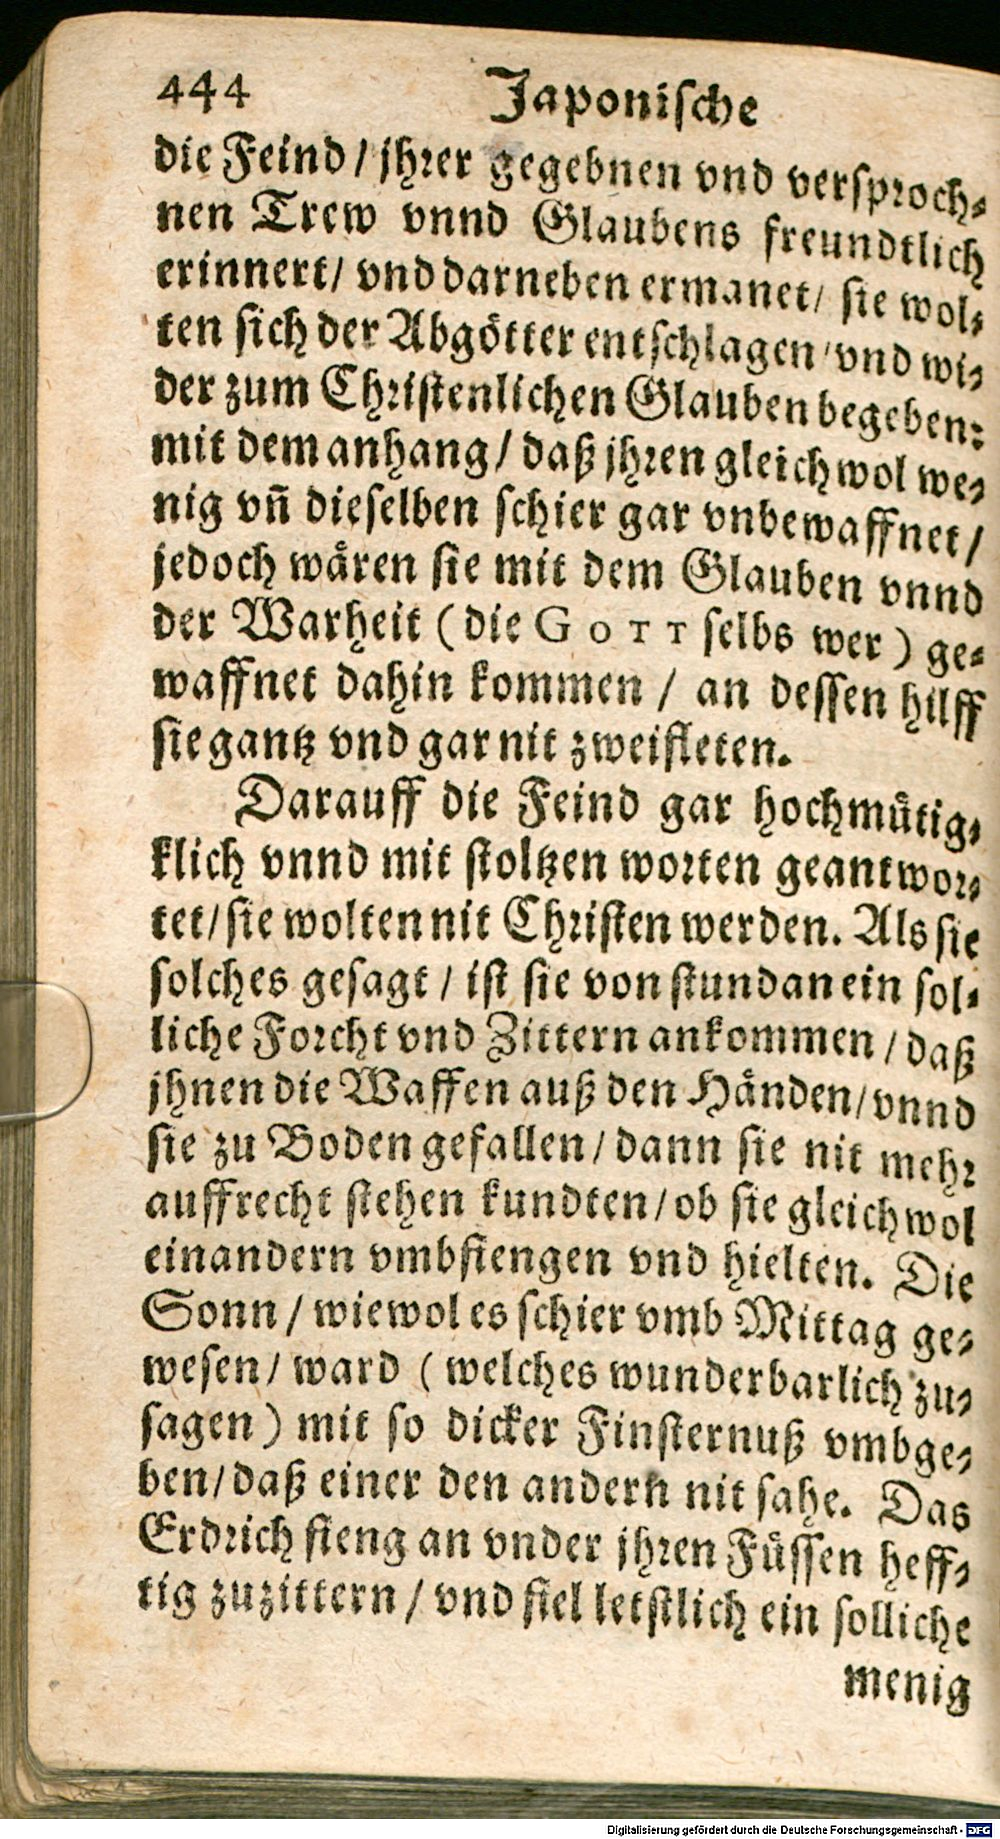 444 Japonische
die Feind / jhrer gegebnen vnd versproch⸗
nen Trew vnnd Glaubens freundtlich
erinnert / vnd darneben ermanet / sie wol⸗
ten sich der Abgötter entschlagen / vnd wi⸗
der zum Christenlichen Glauben begeben:
mit dem anhang / daß jhren gleichwol we⸗
nig vñ dieselben schier gar vnbewaffnet /
jedoch wären sie mit dem Glauben vnnd
der Warheit ( die GOTT selbs wer ) ge⸗
waffnet dahin kommen / an dessen hilff
sie gantz vnd gar nit zweifleten.
Darauff die Feind gar hochmütig⸗
klich vnnd mit stoltzen worten geantwor⸗
tet / sie wolten nit Christen werden. Als sie
solches gesagt / ist sie von stundan ein sol⸗
liche Forcht vnd Zittern ankommen / daß
jhnen die Waffen auß den Händen / vnnd
sie zu Boden gefallen / dann sie nit mehr
auffrecht stehen kundten / ob sie gleichwol
einandern vmbfiengen vnd hielten. Die
Sonn / wiewol es schier vmb Mittag ge⸗
wesen / ward ( welches wunderbarlich zu⸗
sagen ) mit so dicker Finsternuß vmbge⸗
ben / daß einer den andern nit sahe. Das
Erdrich fieng an vnder jhren Füssen heff⸗
tig zuzittern / vnd fiel letstlich ein solliche
menig
Digitalisierung gefördert durch die Deutsche Forschungsgemeinschaft - DFG